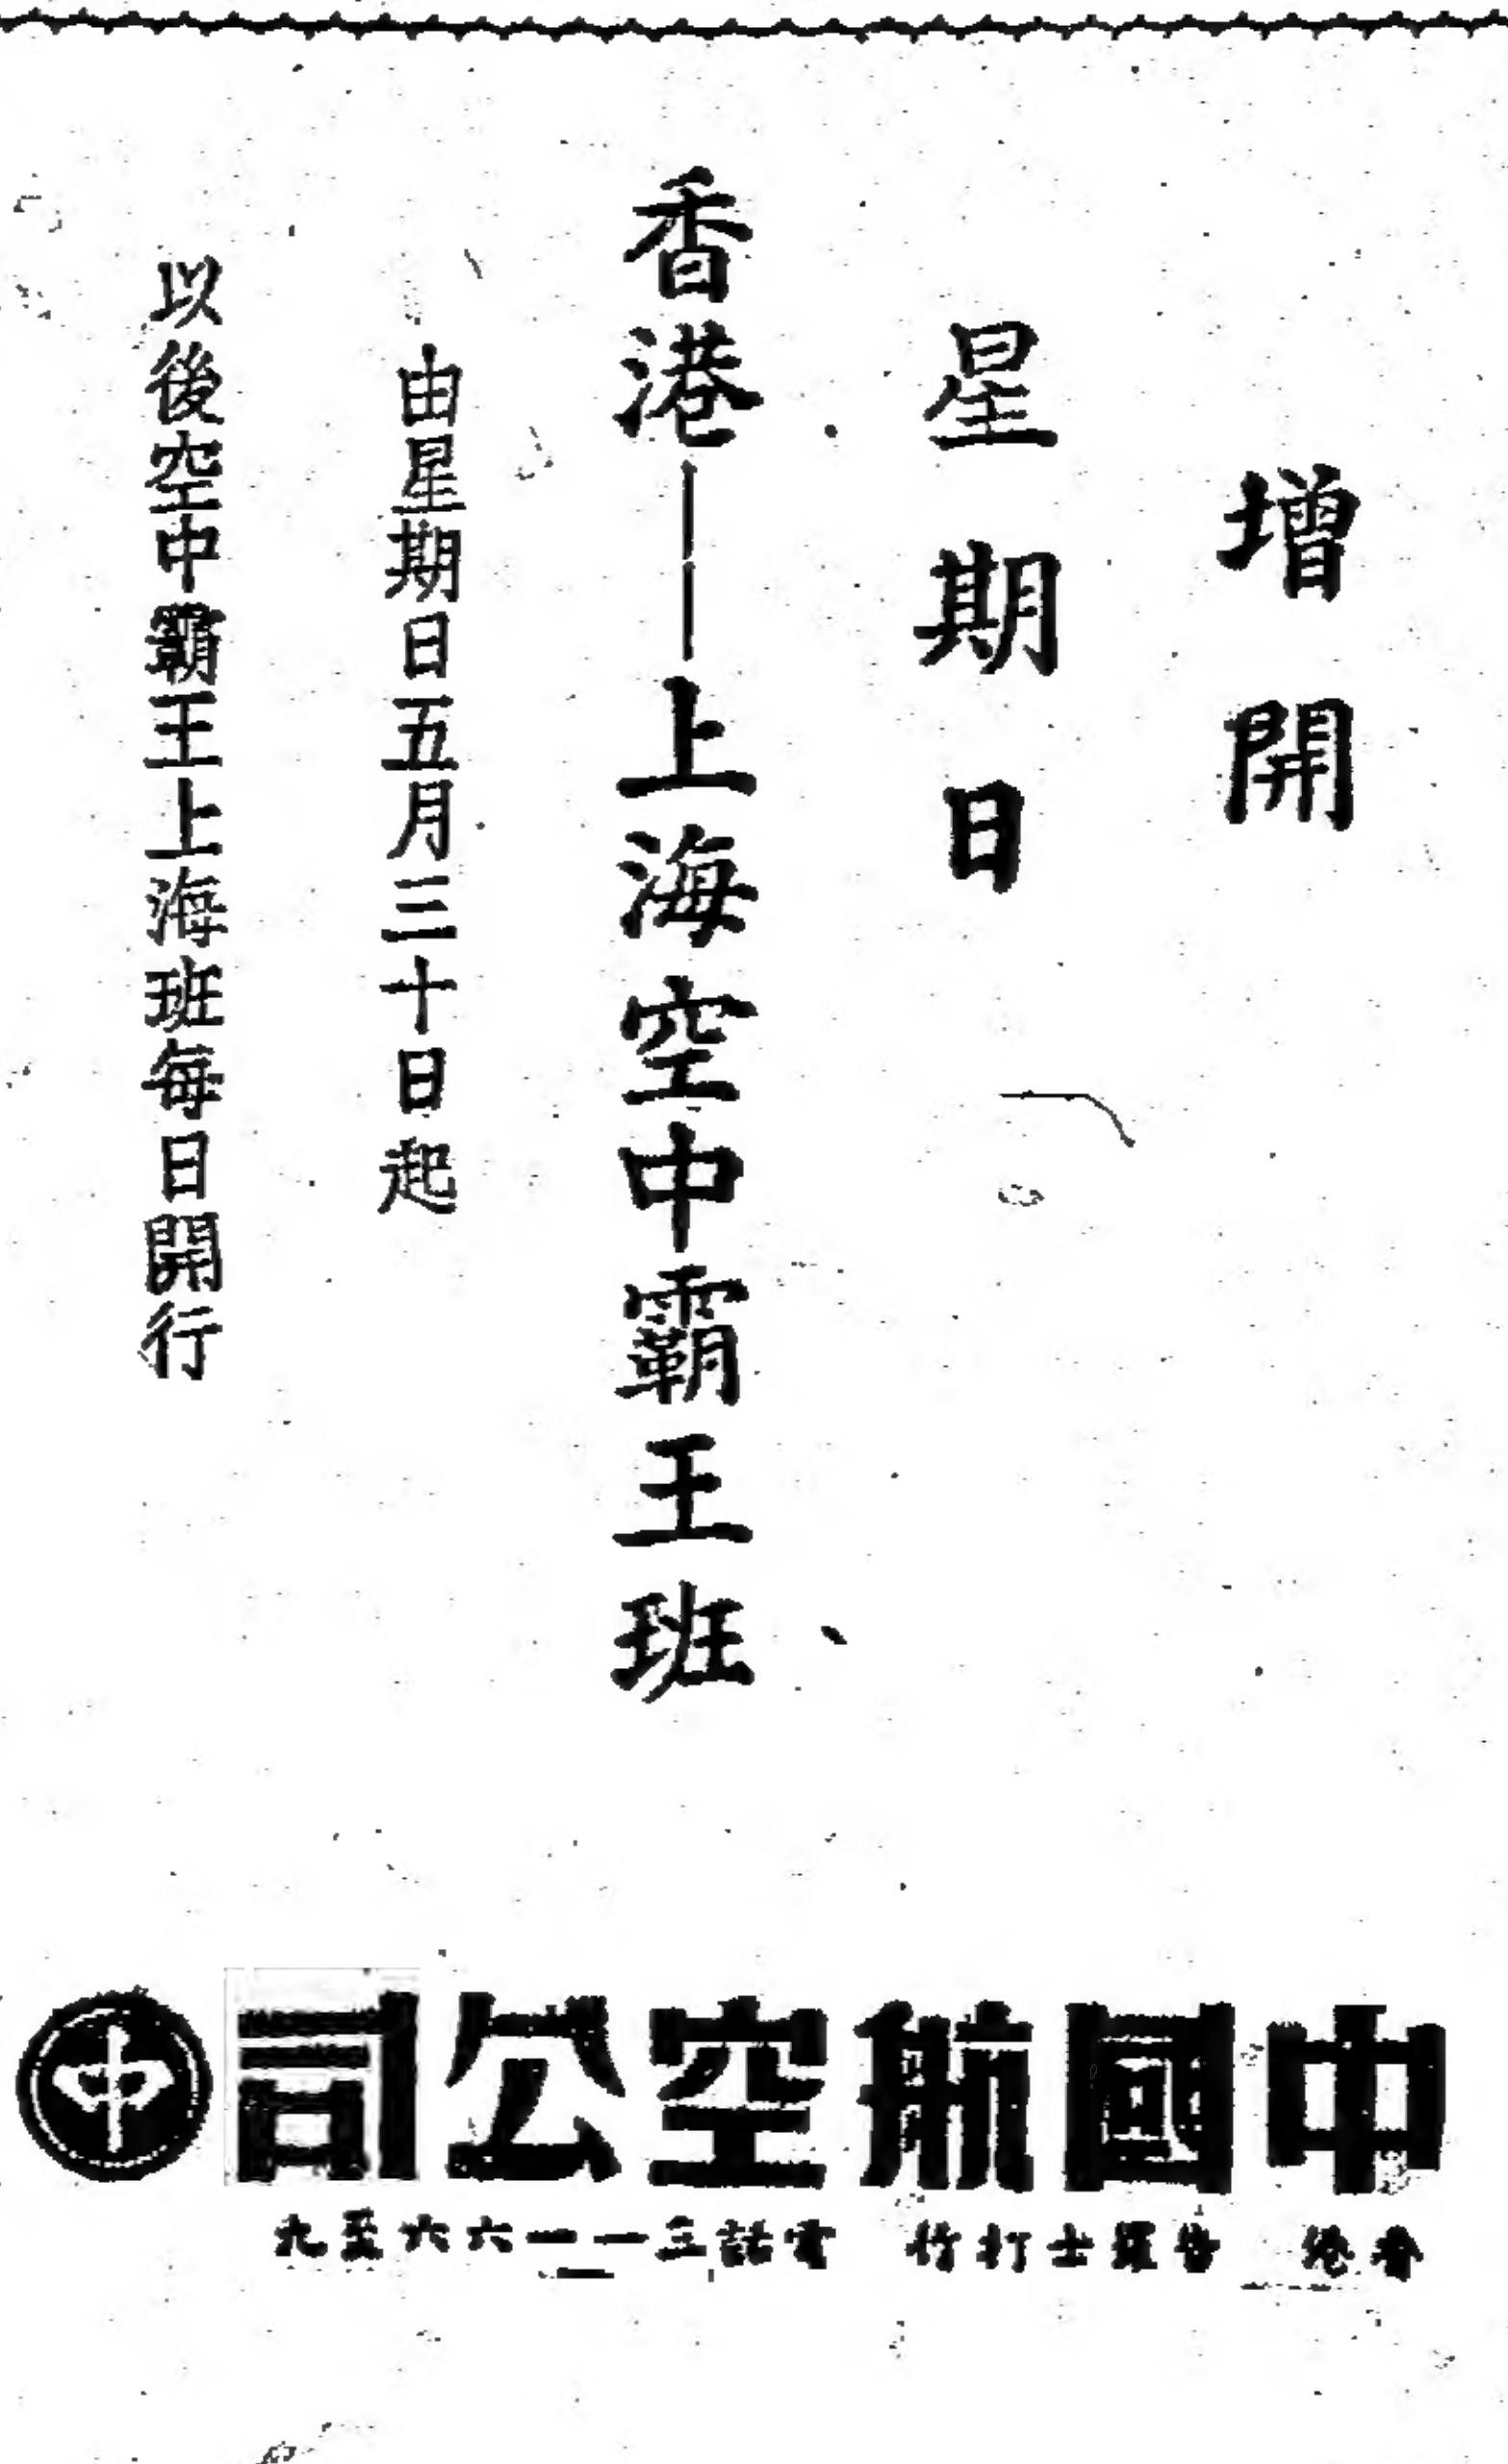 增開
星期日
香港——上海空中霸王班
由星期日五月三十日起
以後空中霸王上海班每日開行
中國航空公司
中
香港 告羅士打行 電話三一一六六至九